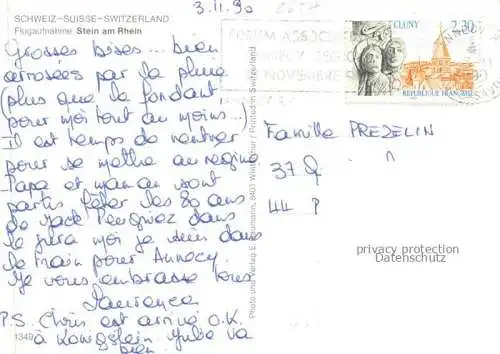 SCHWEIZ-SUISSE-SWITZERLAND
Flugaufnahme Stein am Rhein
3.11.90
Grosses bises... bien
arrosées par la pluie
(plus que la fondant
pour moi tout au moins...)
Il est temps de rentrer
pour se mettre au régime
Papa et maman sont
partis fêter les 80 ans
de Jack dans
le Jura moi je suis dans
le train pour Annecy.
Je vous embrasse tous
Laurence
P.S. Chris est arrivé O.K.
à Königstein Julie va
bien.
1349
Photo und Verlag E. Baumann, 8403 Winterthur / Printed in Switzerland
FORUM ASSOC
NOVEMBRE
CLUNY
2,30
REPUBLIQUE FRANÇAISE
Famille PREZELIN
37
44 P
privacy protection
Datenschutz